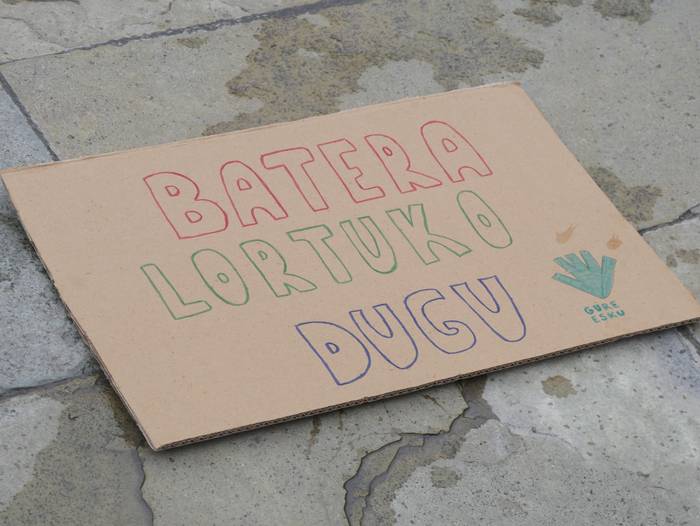 BATERA
LORTUKO
DUGU
GURE
ESKU